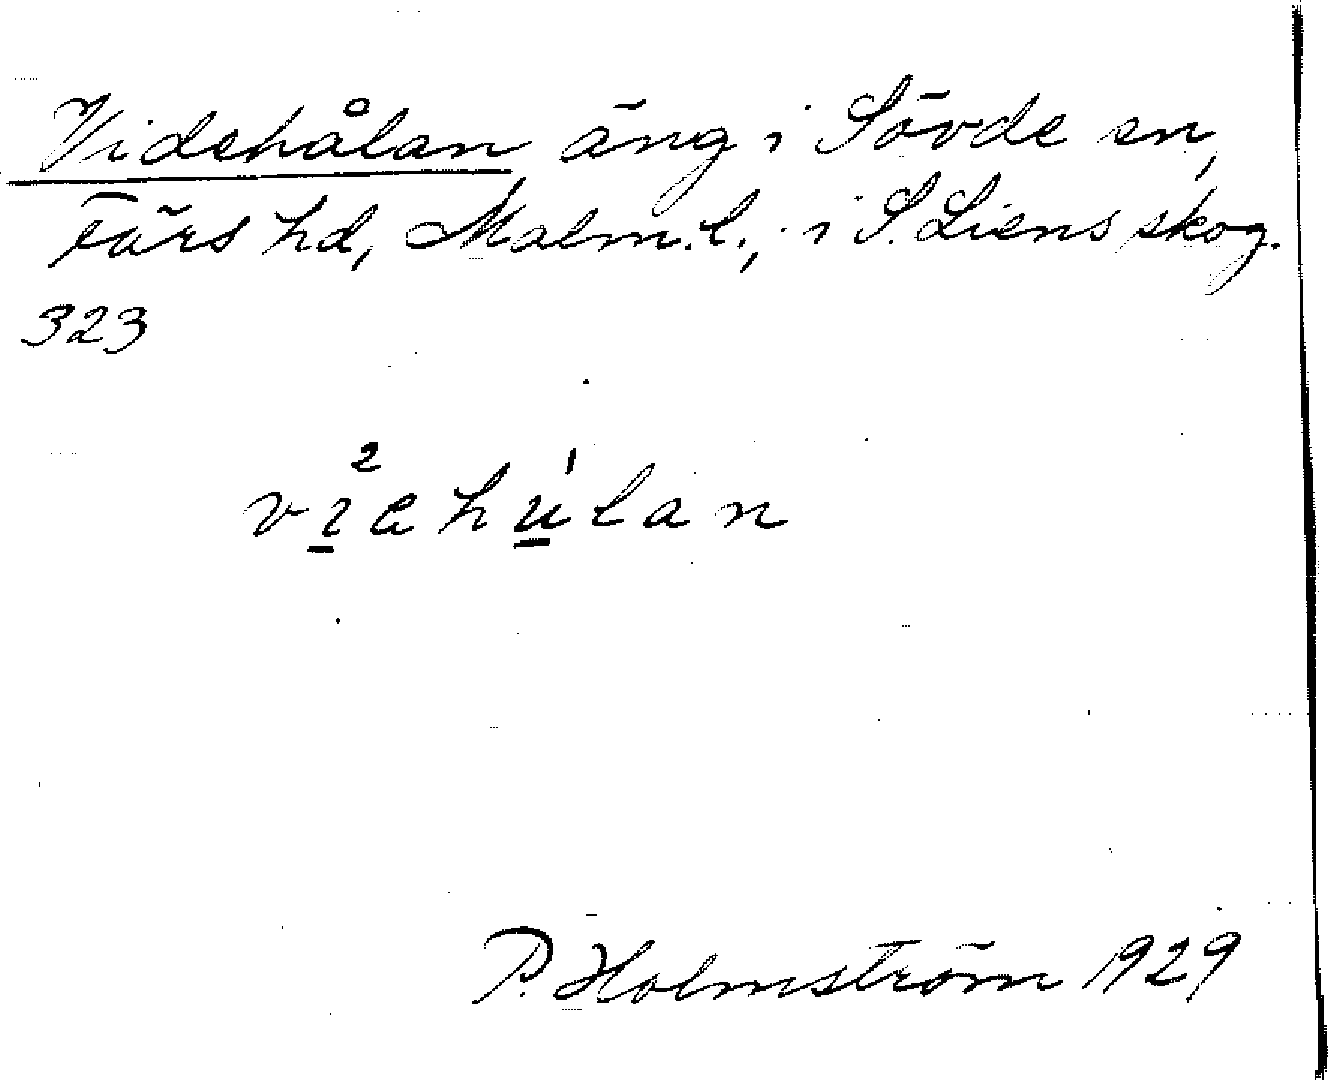 Videhålan äng i Sövde sn,
Färs hd, Malm.l., i S. Liens skog.
323
vıehu̱lan
P. Holmström 1929